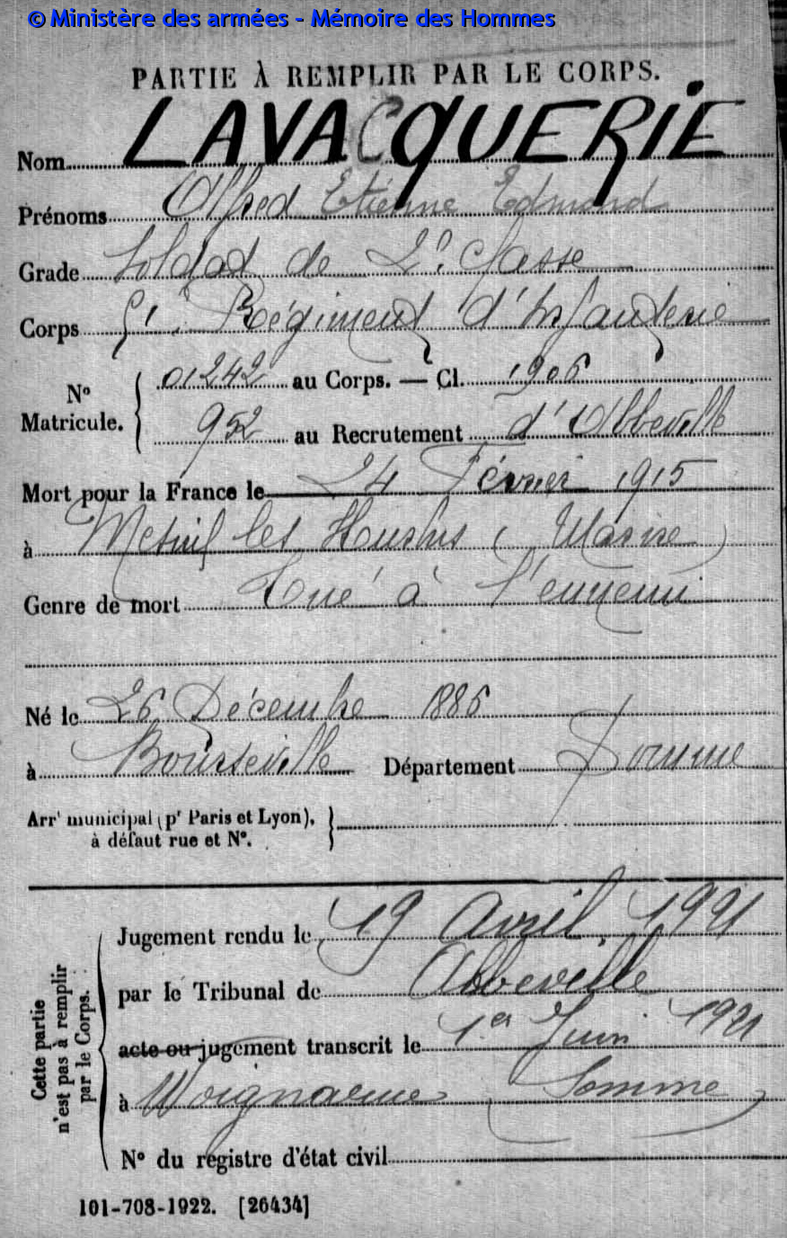 © Ministère des armées - Mémoire des Hommes
PARTIE À REMPLIR PAR LE CORPS.
Nom LAVACQUERIE
Prénoms Alfred Etienne Edmond
Grade Soldat de 2e classe
Corps 51e Régiment d'Infanterie
No Matricule. 01242 au Corps. — Cl. 1906
952 au Recrutement d'Abbeville
Mort pour la France le 24 Février 1915
à Mesnil les Hurlus (Marne)
Genre de mort Tué à l'ennemi
Né le 26 Décembre 1886
à Bourseville Département Somme
Arrt municipal (pr Paris et Lyon),
à défaut rue et No.
Cette partie n'est pas à remplir par le Corps.
Jugement rendu le 19 Avril 1921
par le Tribunal de Abbeville
acte ou jugement transcrit le 1er Juin 1921
à Woignarue (Somme)
No du registre d'état civil
101-708-1922. [26434]